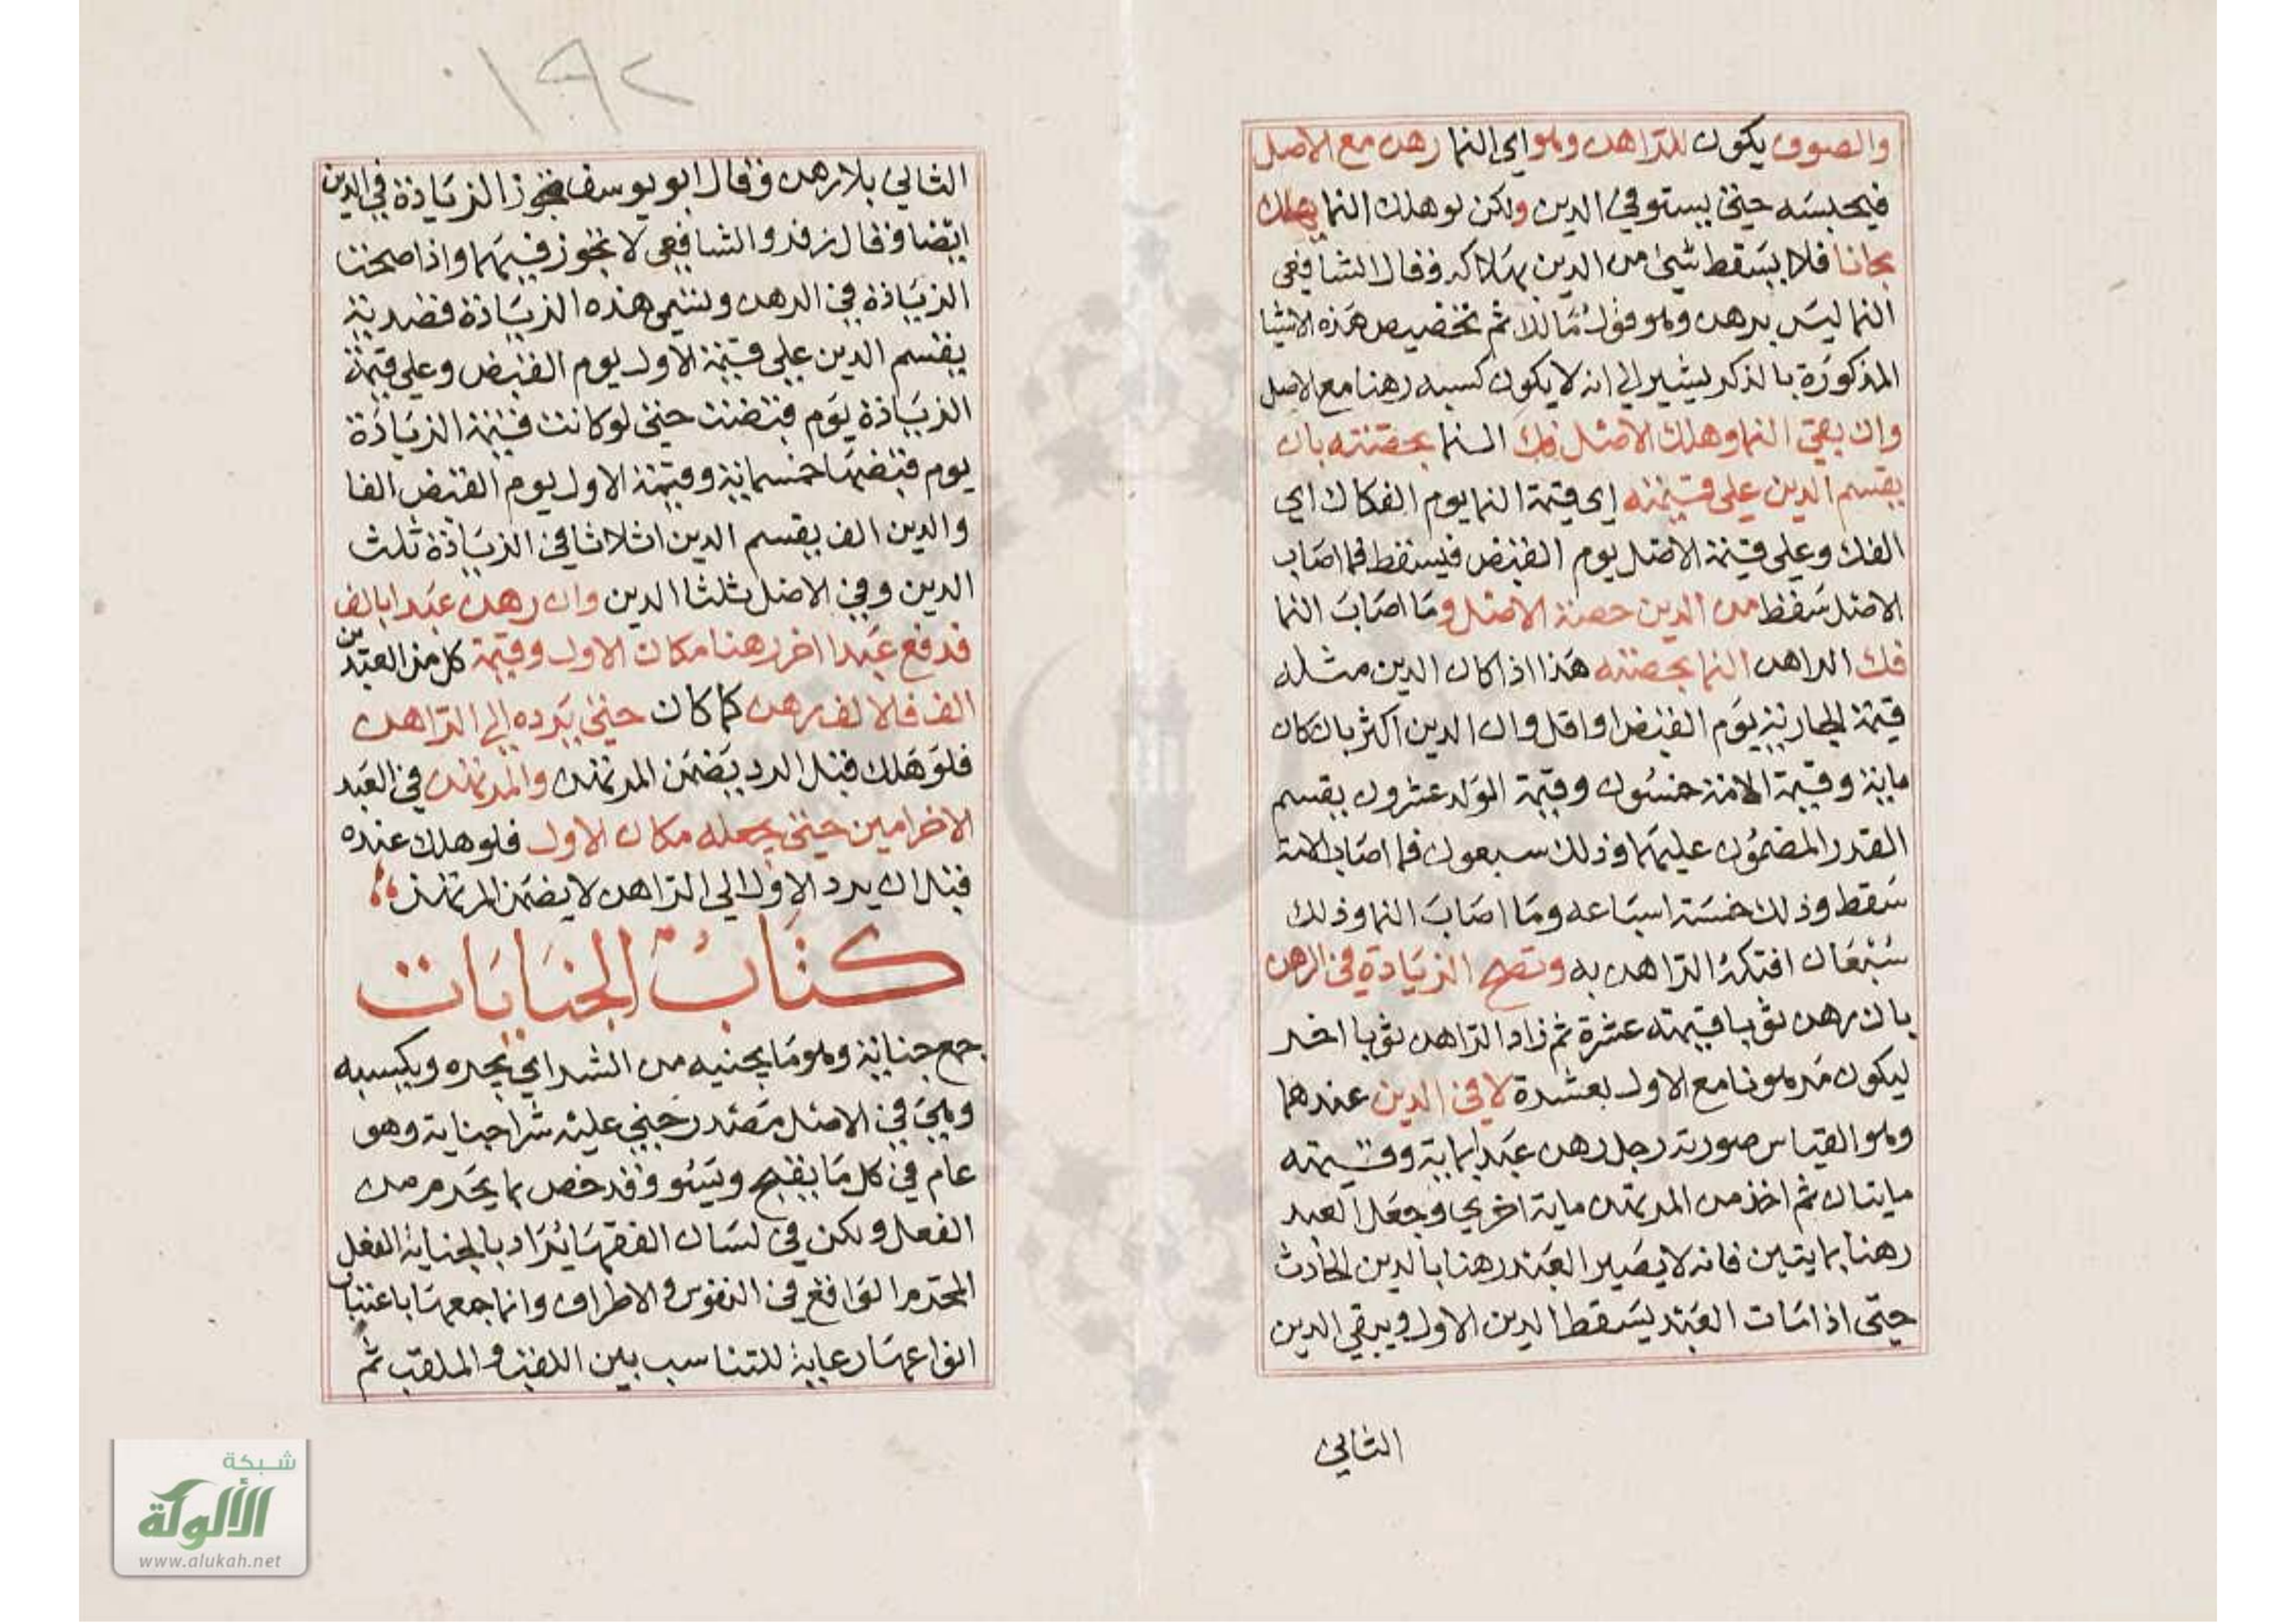 والصوف يكون للراهن وهو اي النما رهن مع الاصل
فيحبسه حتي يستوفي الدين ولكن لو هلك النما يهلك
مجانا فلا يسقط شي من الدين بهلاكه وقال الشافعي
النما ليس برهن وهو قول مالك ثم تخصيص هذه الاشيا
المذكورة بالذكر يشير الي انه لا يكون كسبه رهنا مع الاصل
وان بقي النما وهلك الاصل فك النما بحصته بان
يقسم الدين علي قيمته اي قيمة النما يوم الفكاك اي
الفك وعلي قيمة الاصل يوم القبض فيسقط فما اصاب
الاصل سقط من الدين حصة الاصل وما اصاب النما
فك الراهن النما بحصته هذا اذا كان الدين مثله
قيمة الجارية يوم القبض او اقل وان الدين اكثر بان كان
ماية وقيمة الامة خمسون وقيمة الولد عشرون يقسم
القدر المضمون عليهما وذلك سبعون فما اصاب الامة
سقط وذلك خمسة اسباعه وما اصاب النما وذلك
سبعان افتكه الراهن به وتصح الزيادة في الرهن
بان رهن ثوبا قيمته عشرة ثم زاد الراهن ثوبا اخر
ليكون مرهونا مع الاول بعشرة لا في الدين عندهما
وهو القياس صورته رجل رهن عبدا بماية وقيمته
مايتان ثم اخذ من المرتهن ماية اخري وجعل العبد
رهنا بمايتين فانه لا يصير العبد رهنا بالدين الحادث
حتي اذا مات العبد يسقط الدين الاول ويبقي الدين
الثاني
١٩٢
الثاني بلا رهن وقال ابو يوسف تجوز الزيادة في الدين
ايضا وقال زفر والشافعي لا تجوز فيهما واذا صحت
الزيادة في الرهن وتسمي هذه الزيادة قصدية
يقسم الدين علي قيمة الاول يوم القبض وعلي قيمة
الزيادة يوم قبضت حتي لو كانت قيمة الزيادة
يوم قبضها خمسماية وقيمة الاول يوم القبض الفا
والدين الف يقسم الدين اثلاثا في الزيادة ثلث
الدين وفي الاصل ثلثا الدين وان رهن عبدا بالف
فدفع عبدا اخر رهنا مكان الاول وقيمة كل من العبدين
الف فالاول رهن كما كان حتي يرده الي الراهن
فلو هلك قبل الرد يضمن المرتهن والمرتهن في العبد
الاخر امين حتي يجعله مكان الاول فلو هلك عنده
قبل ان يرد الاول الي الراهن لا يضمن المرتهن
كتاب الجنايات
جمع جناية وهو ما يجنيه من الشر اي يجره ويكسبه
وهي في الاصل مصدر جني عليه شرا جناية وهو
عام في كل ما يقبح ويسو وقد خص بما يحرم من
الفعل ولكن في لسان الفقها يراد بالجناية الفعل
المحرم الواقع في النفوس والاطراف وانما جمعها باعتبار
انواعها رعاية للتناسب بين اللقب والملقب ثم
شبكة
الألوكة
www.alukah.net